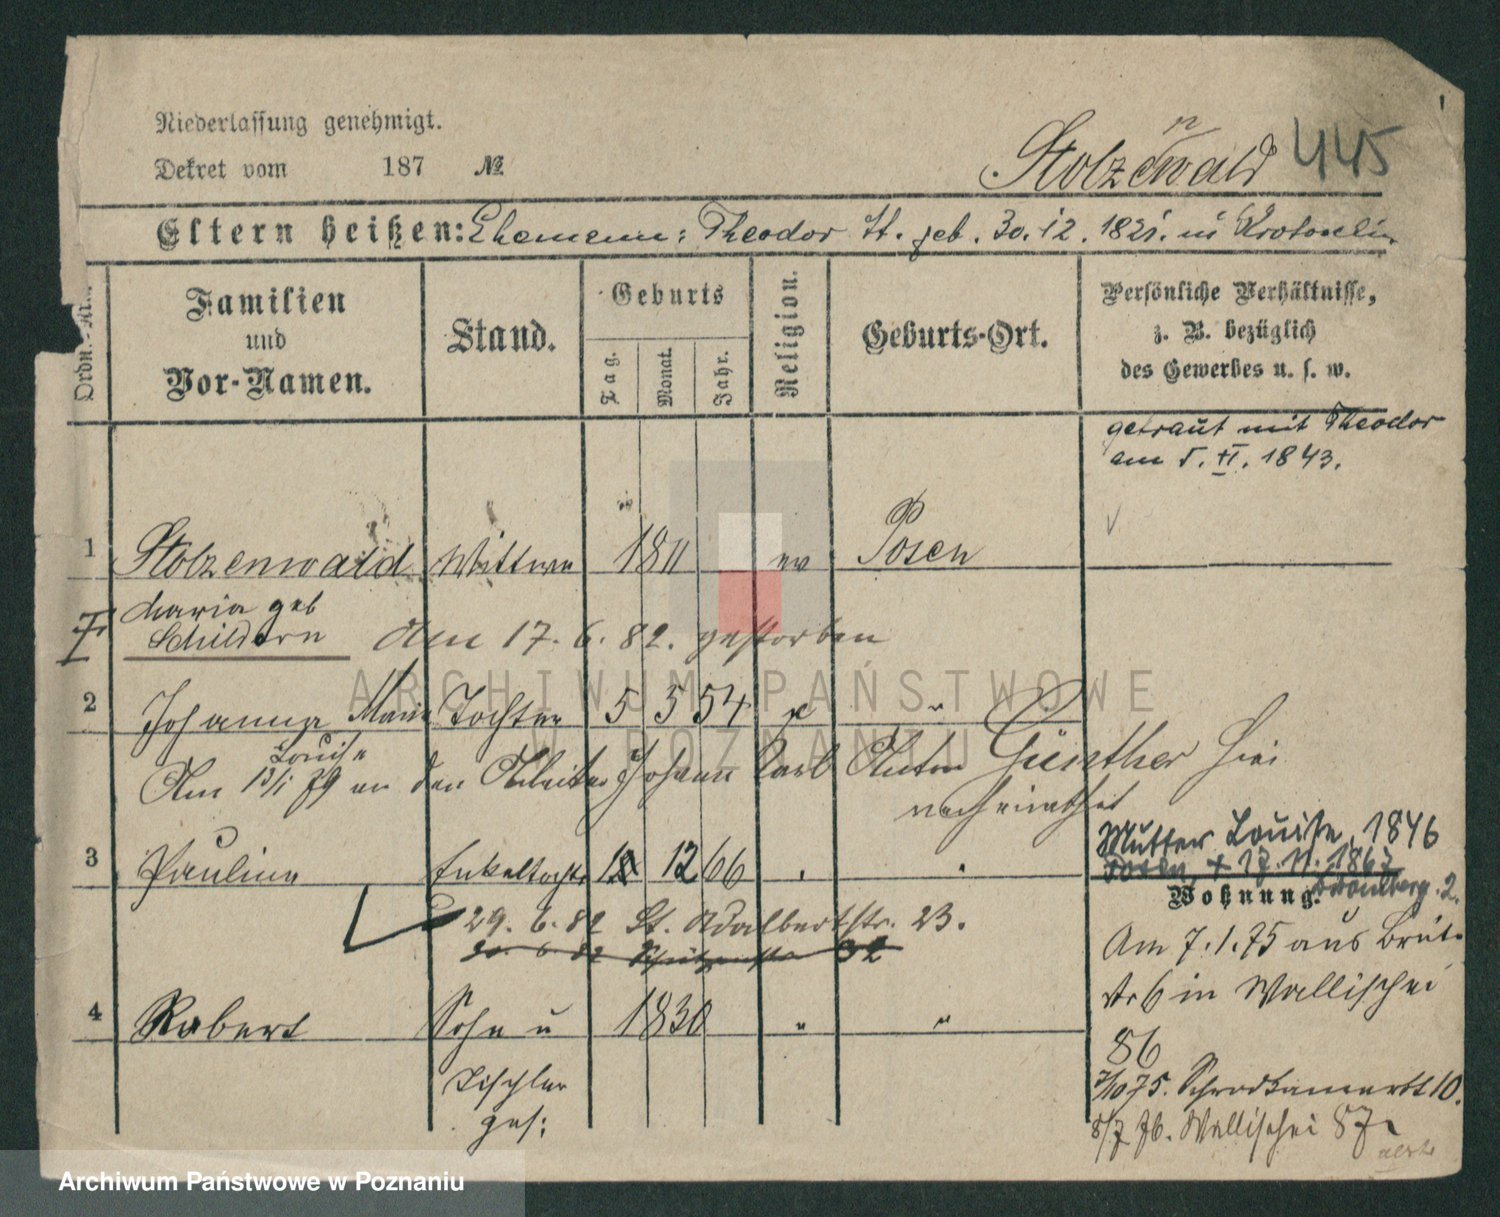 Niederlassung genehmigt.
Dekret vom 187 №
Stolzenwald 445
Eltern heißen: Ehemann: Theodor St. geb. 30.12.1821. in Krotoschin
Ordn.-Nr.
Familien und Vor-Namen.
Stand.
Geburts
Tag.
Monat.
Jahr.
Religion.
Geburts-Ort.
Persönliche Verhältnisse,
z. B. bezüglich
des Gewerbes u. s. w.
getraut mit Theodor
am 5. XI. 1843.
1 Stolzenwald Wittwe 1811 ev Posen
Maria geb
Schildern Am 17. 6. 82. gestorben
2 Johanna Marie Tochter 5 5 54 "
Louise
Am 13/1 79 an den Arbeiter Johann Carl Anton Günther hier
verheirathet
3 Pauline Enkeltocht 12 66 " "
Mutter Louise, 1846
Posen, † 17. 11. 1867
Wohnung.
29. 6. 82 St. Adalbertstr. 23.
30. 6. 82 32
Am 7. 1. 75 aus Brüt.
str 6 in Wallischei
86
4 Robert Sohn u 1830 " "
Tischler
ges:
7/10 75. Schrodkamarkt 10.
8/7 76. Wallischei 87
ARCHIWUM PAŃSTWOWE
W POZNANIU
Archiwum Państwowe w Poznaniu